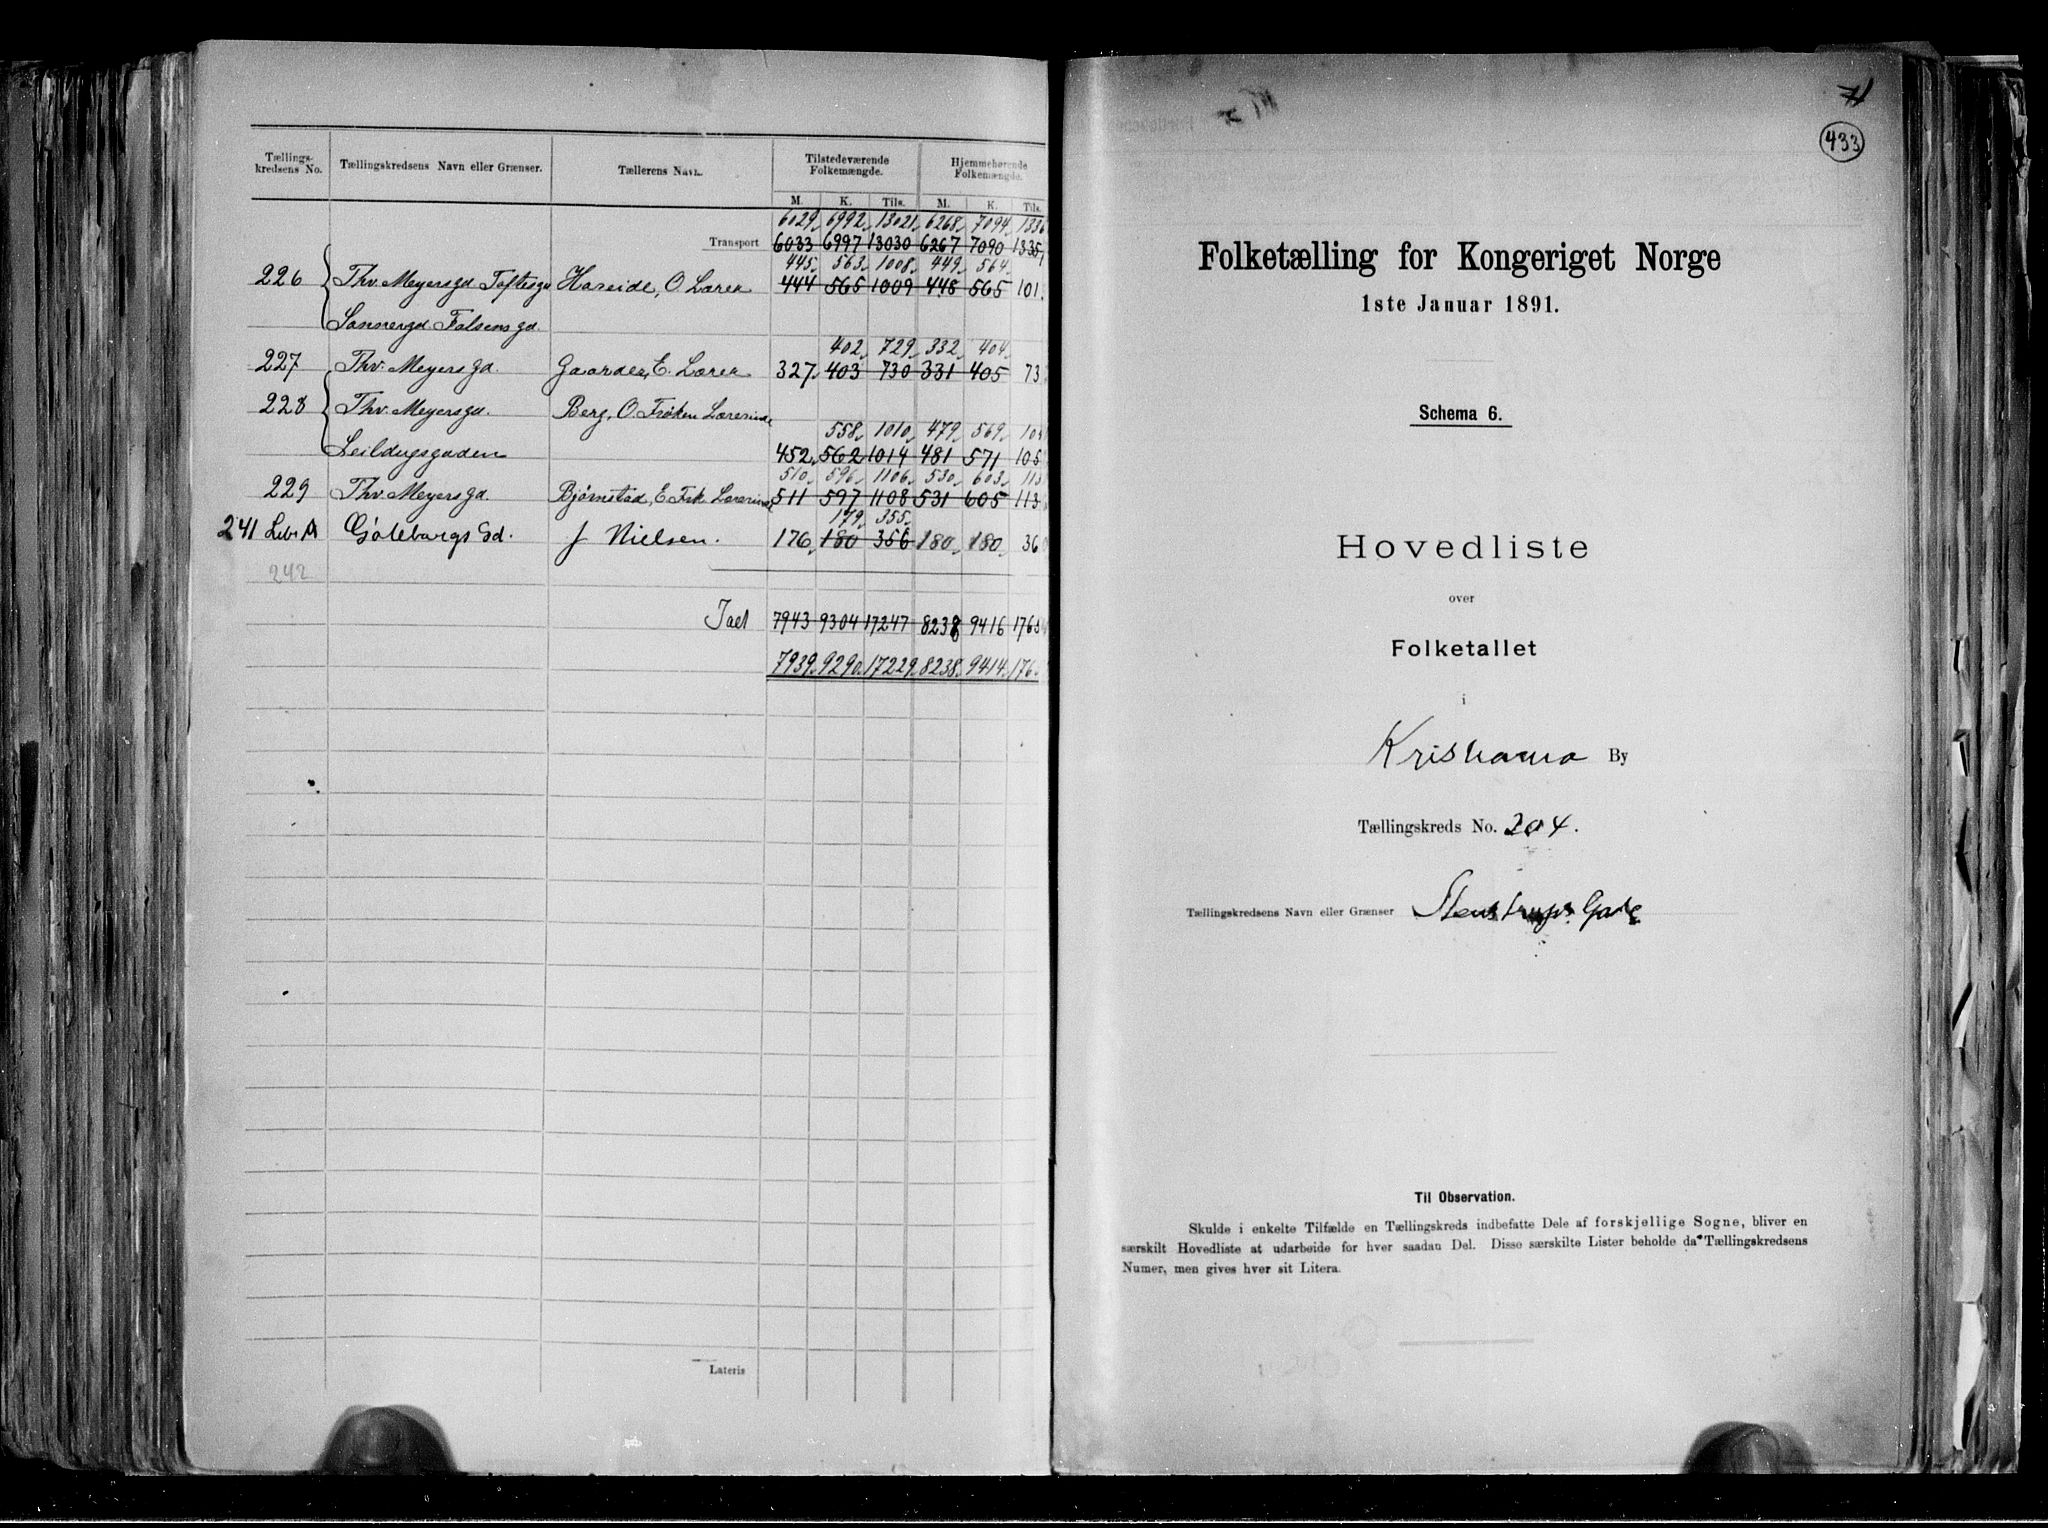 Tællings-
kredsens No.
Tællingskredsens Navn eller Grænser.
Tællerens Navn.
Tilstedeværende
Folkemængde.
Hjemmehørende
Folkemængde.
M. K. Tils. M. K. Tils.
6029 6992 13021 6268 7094 1336
Transport 6033 6997 13030 6267 7090 1335
445 563 1008 449 564
226 Thv. Meyersgd Toftesgd Hareide, O. Lærer 444 565 1009 448 565 101
Sannergd Falsensgd.
402 729 332 404
227 Thv. Meyersgd. Gaarder, E. Lærer 327 403 730 331 405 73
228 Thv. Meyersgd. Berg, O. Frøken Lærerinde
558 1010 479 569 104
Seildugsgaden 452 562 1014 481 571 105
510 596 1106 530 603 113
229 Thv. Meyersgd. Bjørnstad, E. Frk Lærerinde 511 597 1108 531 605 113
179 355
241 Litr A Gøteborgs Gd. J Nielsen. 176 180 356 180 180 36
242
Ialt 7943 9304 17247 8238 9416 1765
7939 9290 17229 8238 9414 176
Lateris
71
433
Folketælling for Kongeriget Norge
1ste Januar 1891.
Schema 6.
Hovedliste
over
Folketallet
i
Kristiania By
Tællingskreds No. 204.
Tællingskredsens Navn eller Grænser Stenstrups Gade
Til Observation.
Skulde i enkelte Tilfælde en Tællingskreds indbefatte Dele af forskjellige Sogne, bliver en
særskilt Hovedliste at udarbeide for hver saadan Del. Disse særskilte Lister beholde da Tællingskredsens
Numer, men gives hver sit Litera.